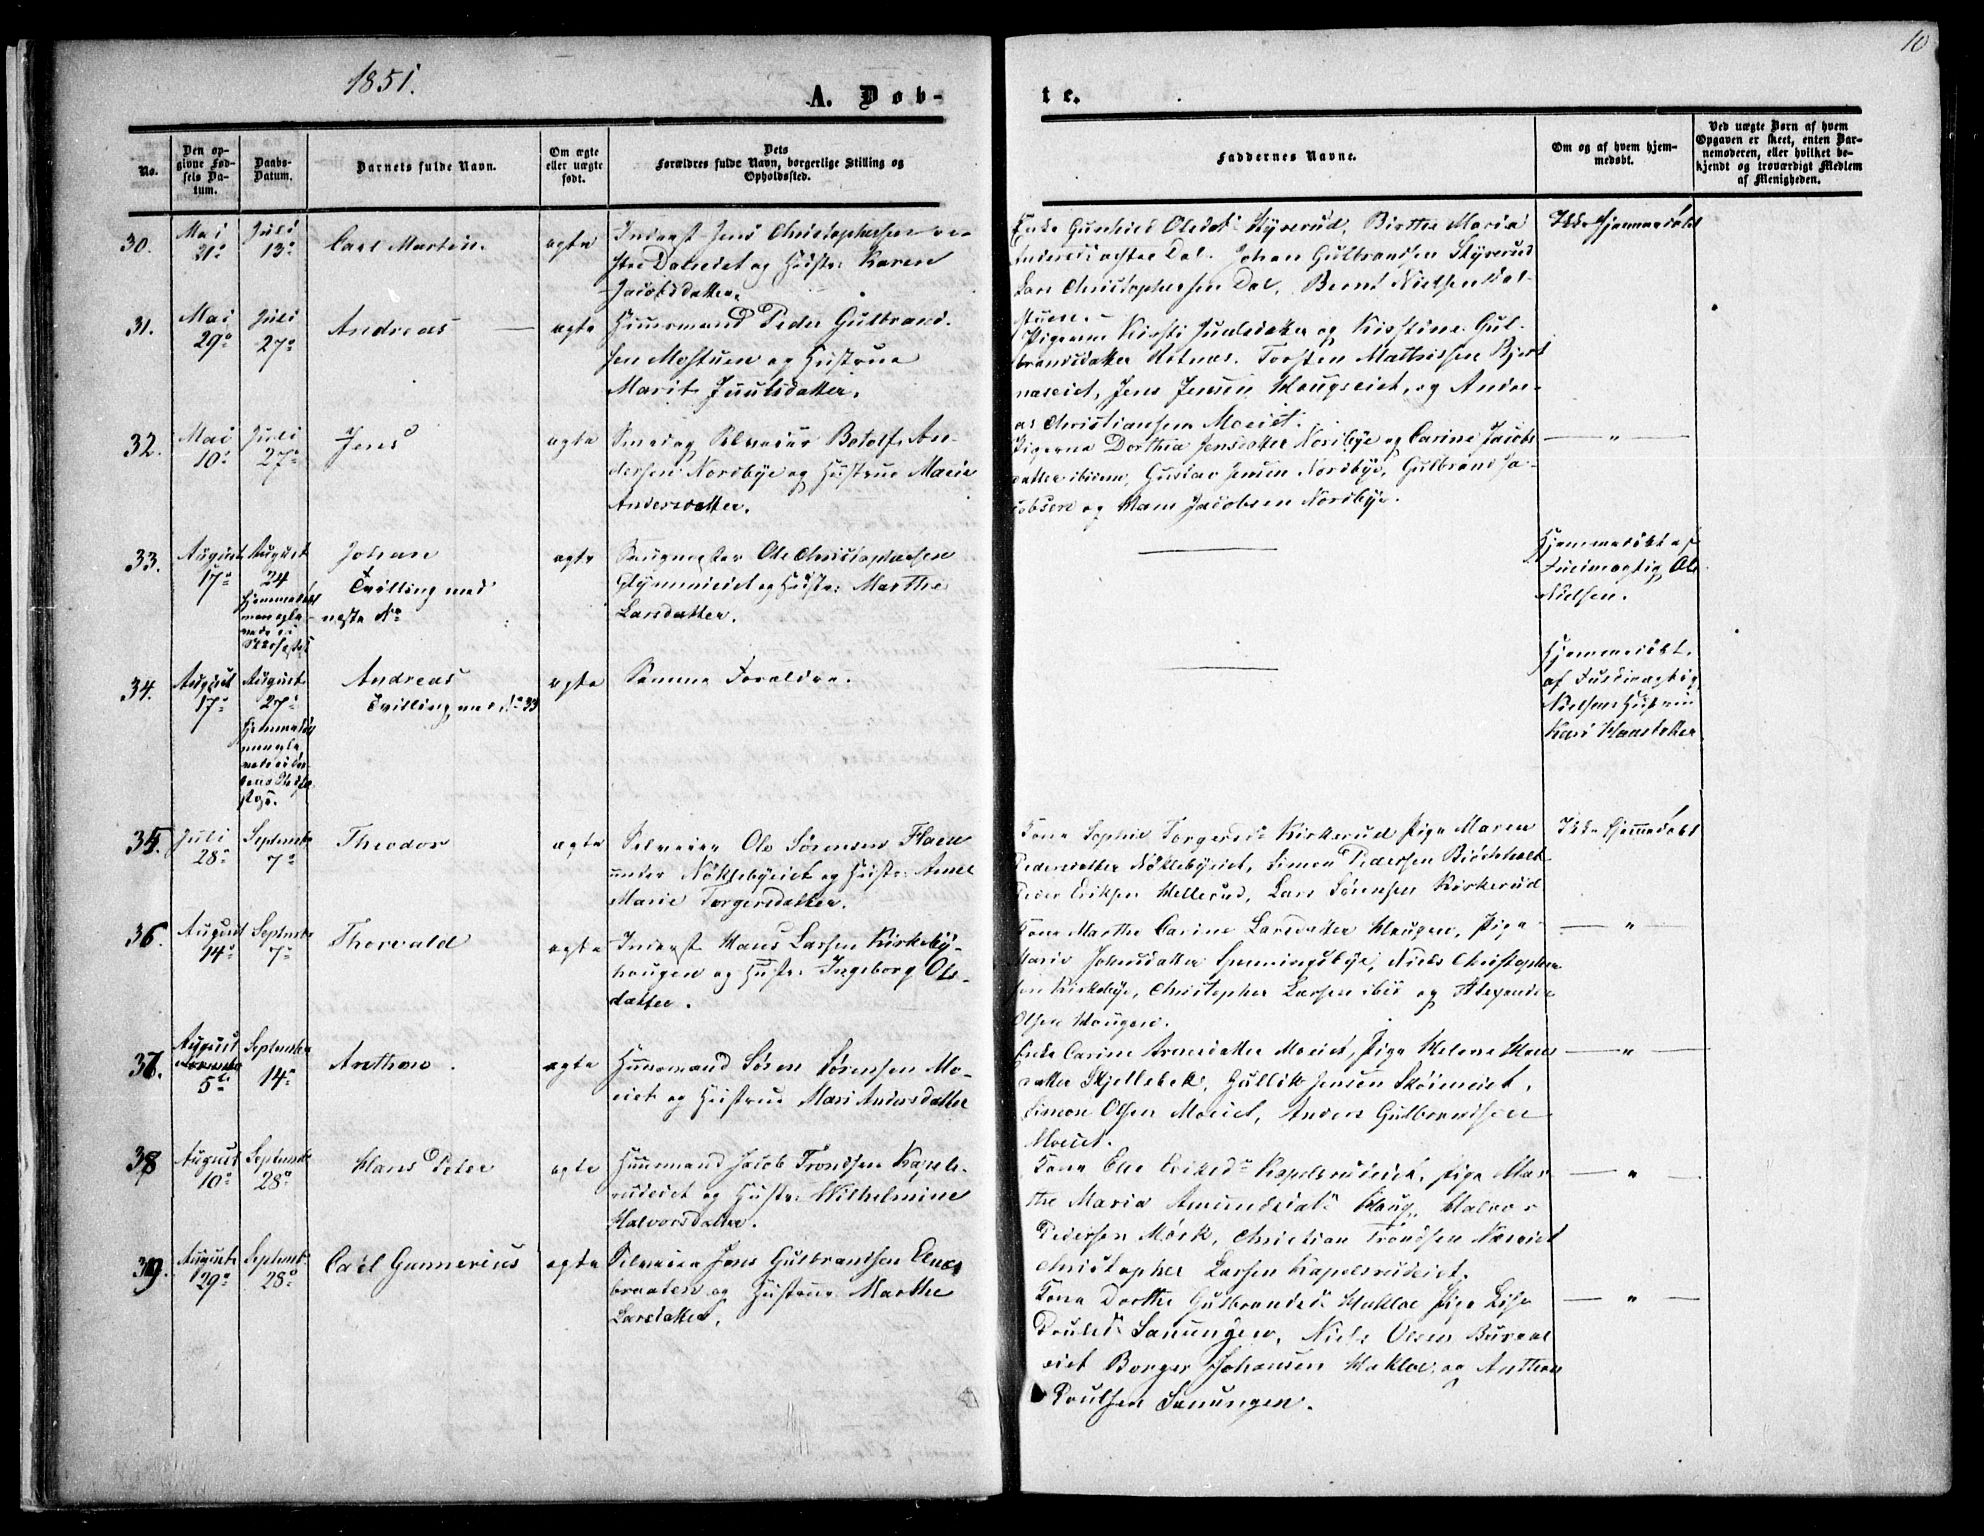 1851.
10
A. Døb-
te.
No.
Den op-
givne Fød-
sels Da-
tum.
Daabs-
Datum.
Barnets fulde Navn.
Om ægte
eller uægte
født.
Dets
Forældres fulde Navn, borgerlige Stilling og
Opholdssted.
Faddernes Navne.
Om og af hvem hjem-
medøbt.
Ved uægte Børn af hvem
Opgaven er skeet, enten Bar-
nemoderen, eller hvilket be-
kjendt og troværdigt Medlem
af Menigheden.
30.
Mai
21de
Juli
13de
Carl Martin.
ægte
Inderst Jens Christophersen ve-
stre Daleiet og Hustr: Karen
Jacobsdatter.
Enke Gunhild Olsdtr Styrerud, Birthe Maria
Dal. Johan Gulbrandsen Styrerud
Lars Christophersen Dal, Bernt Nielsen Dal-
stuen.
Ikke Hjemmedøbt
31.
Mai
29de
Juli
27de
Andreas
ægte
Huusmand Peder Gulbrand-
sen Mostuen og Hustrue
Marit Juulsdatter.
Pigerne Kirsti Juulsdatter og Kirstine Gul-
brandsdatter Hotnæs. Torsten Mathissen Bjert
næseiet, Jens Jensen Haugseiet, og Andre-
as Christiansen Moeiet.
32.
Mai
10de
Juli
27de
Jens
ægte
Smed og Selveier Botolf An-
dersen Nordbye og Hustrue Marie
Andersdatter.
Pigerne Dorthea Jensdatter Nordbye og Carine Jacobs
datter ibidem, Gustav Jensen Nordbye, Gulbrand Ja-
cobsen og Hans Jacobsen Nordbye.
— " —
33.
August
17de
August
24
Hjemmedøbt
Johan
Tvilling med
næste No
ægte
Ole Christophersen
Glymmeiet og Hustr: Marthe
Larsdatter.
Hjemmedøbt af
Ole
Nielsen.
34.
August
17de
August
27de
Hjemmedøbt
Andreas
Tvilling med No 33
ægte
Samme Forældre.
Hjemmedøbt
af
Nielsens Hustrue
Kari Hansdatter.
35.
Juli
28de
Septembr
7de
Theodor
ægte
Selveier Ole Sørensen Floen
under Nöklebyeiet og Hustr: Anne
Marie Torgersdatter.
Kone Sophie Torgersdr Kirkerud Pige Maren
Pedersdatter Nöklebyeiet, Simen Pedersen Bjöchholt
Peder Eriksen Hellerud, Lars Sørensen Kirkerud
Ikke Hjemmedøbt
36.
August
14de
Septembr
7de
Thorvald
ægte
Inderst Hans Larsen Kirkeby-
haugen og Hustr: Ingeborg Ols-
datter.
Kone Marthe Carine Larsdatter Haugen, Pige
Marie Johnsdatter Nils Christopher
sen Kirkebye, Christopher Larsen ibid og Alexander
Olsen Haugen.
— " —
37.
August
5te
September
14de
Anthon.
ægte
Huusmand Søren Sørensen Mo-
eiet og Hustrue Mari Andersdatter
Enke Carine Arnesdatter Moeiet, Pige Helene Hans
datter Skjellebek, Gullik Jensen Skøieneiet,
Simon Olsen Moeiet, Anders Gulbrandsen
Moeiet.
— " —
38
August
10de
Septembr
28de
Hans Peter
ægte
Huusmand Jacob Trondsen Kapels-
rudeiet og Hustr: Wilhelmine
Halvorsdatter.
Kone Else Eriksdr Kapelsrudeiet, Pige Mar-
the Maria Amundsdatr Haug, Halvor
Pedersen Mörk, Christian Trondsen Næseiet
Christopher Larsen Kapelsrudeiet.
— " —
39.
August
29de
Septembr
28de
Carl Gunnerius
ægte
Selveier Jens Gulbrandsen
braaten og Hustrue Marthe
Larsdatter.
Kone Dorthe Gulbrandsdr Hakloe Pige Lise
Poulsdr Sanungen, Niels Olsen
eiet Borger Johansen Hakloe, og Anthon
Poulsen Sanungen.
— " —